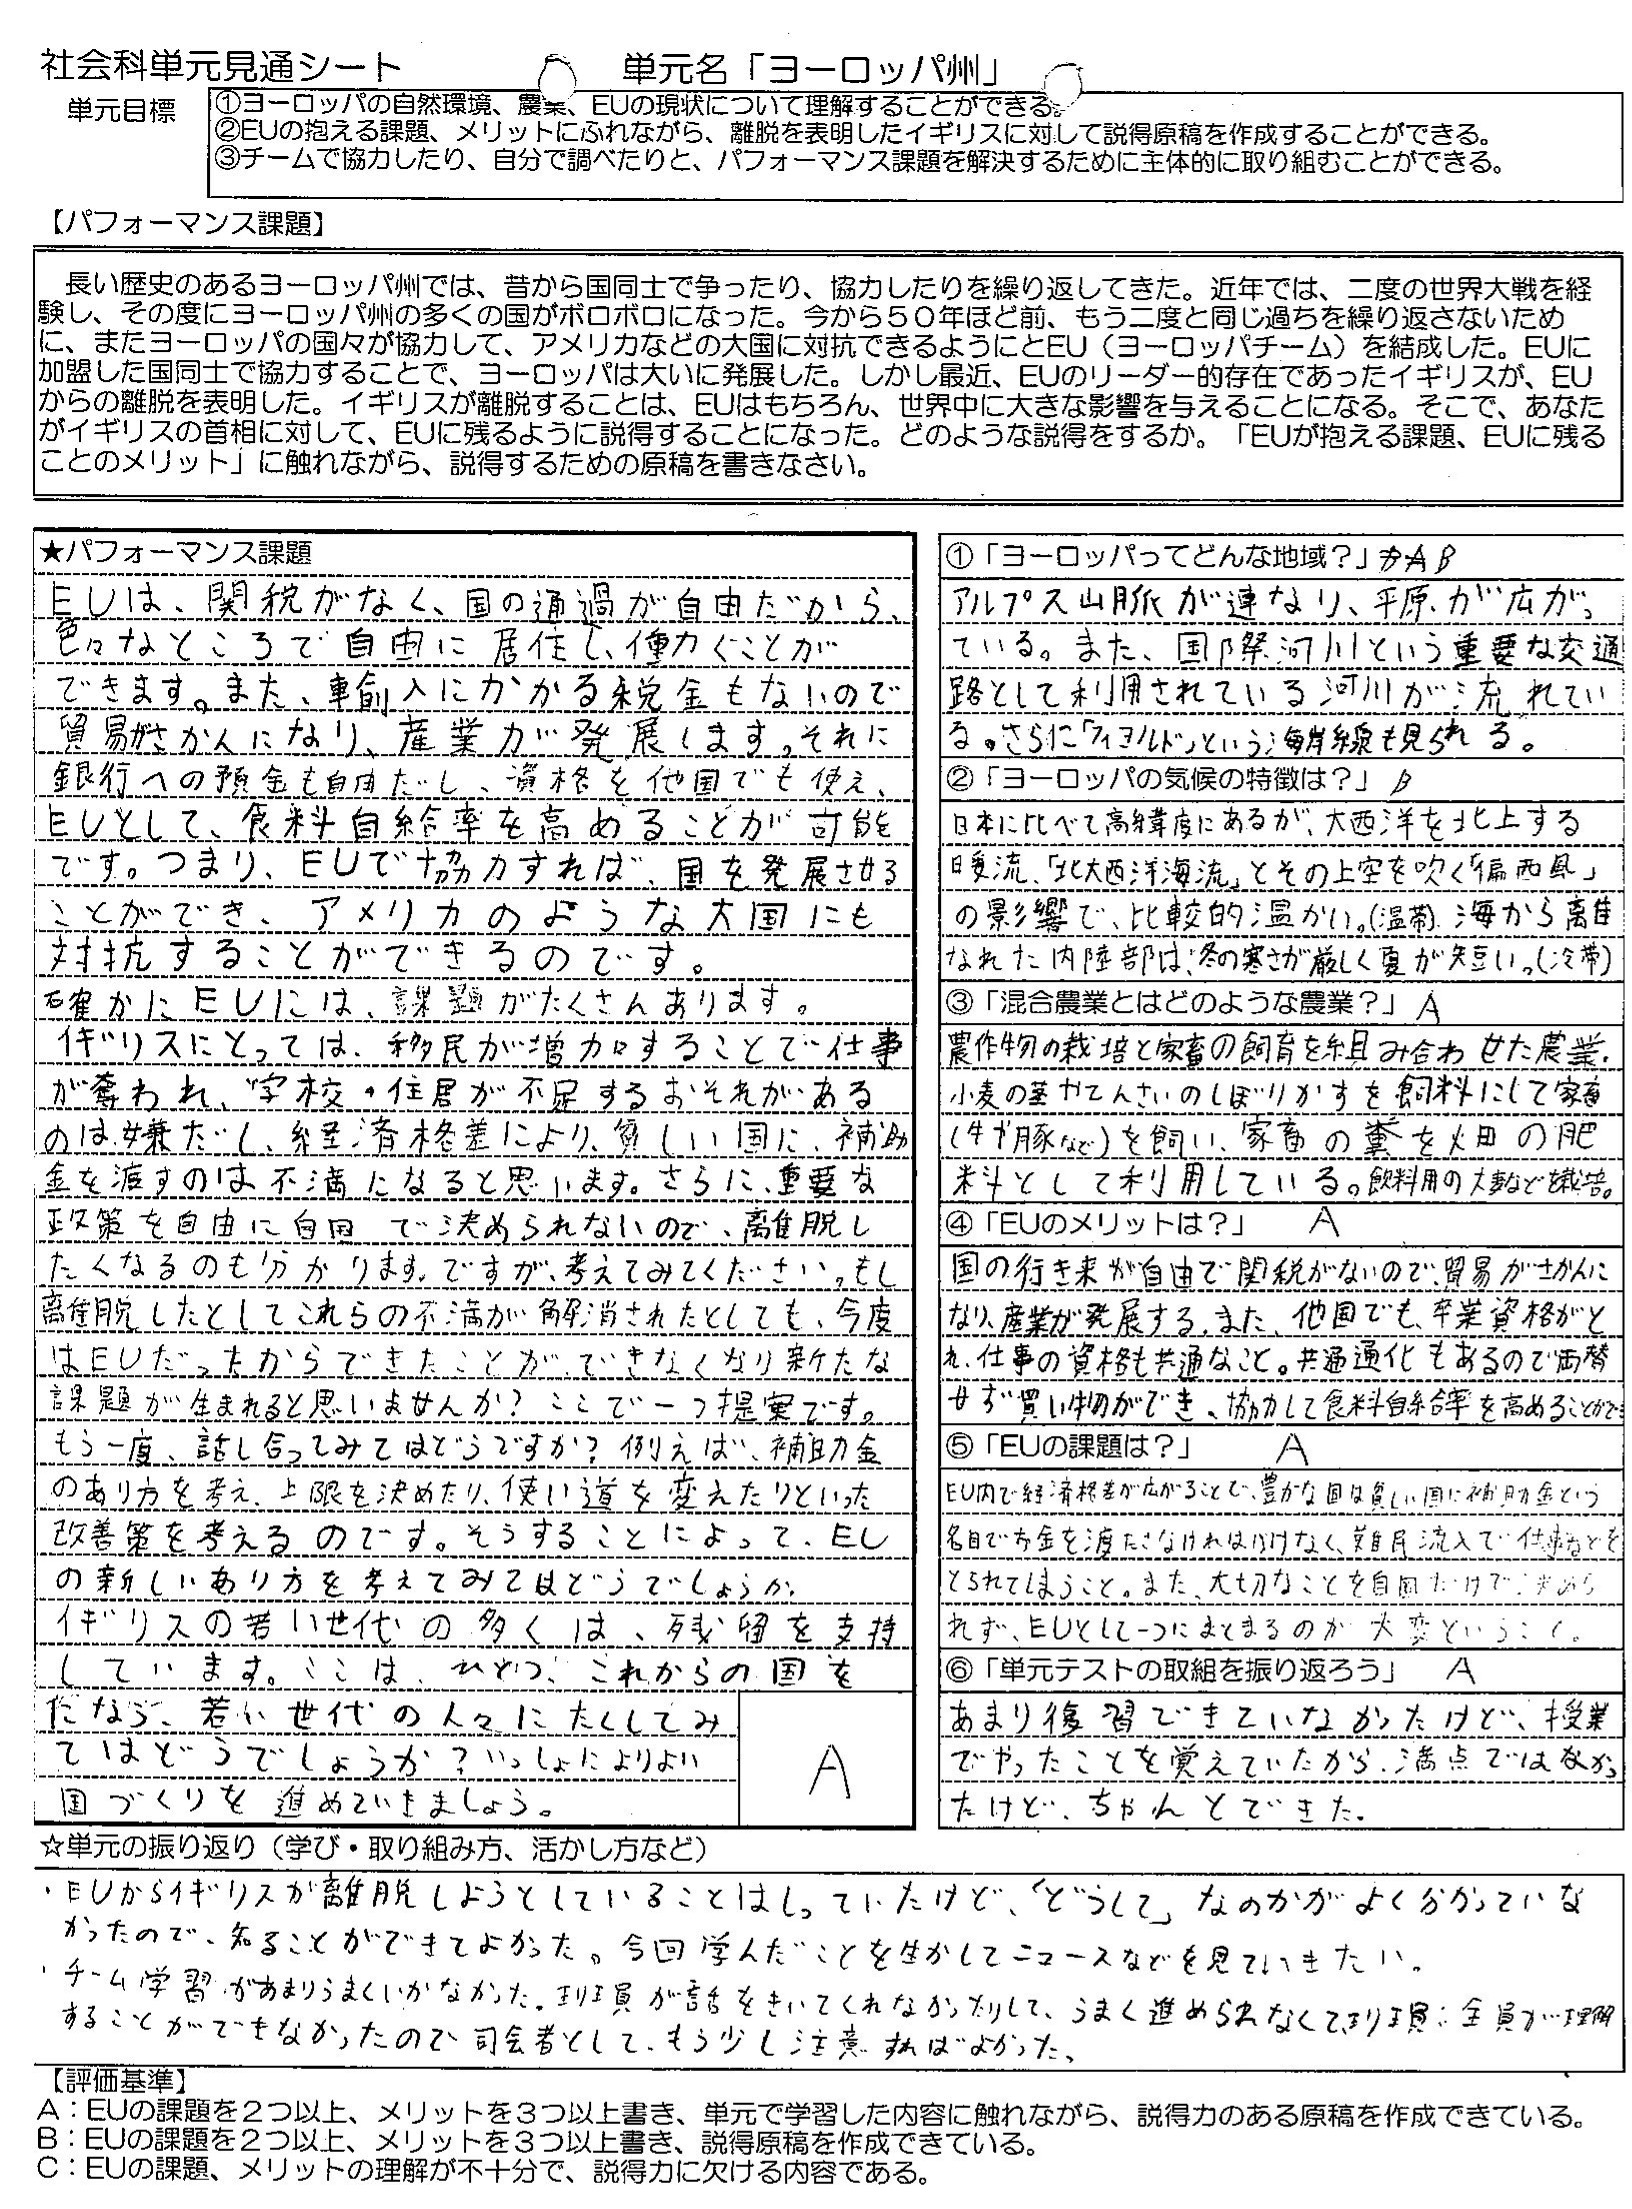 社会科単元見通シート
単元名「ヨーロッパ州」
単元目標
①ヨーロッパの自然環境、農業、EUの現状について理解することができる。
②EUの抱える課題、メリットにふれながら、離脱を表明したイギリスに対して説得原稿を作成することができる。
③チームで協力したり、自分で調べたりと、パフォーマンス課題を解決するために主体的に取り組むことができる。
【パフォーマンス課題】
長い歴史のあるヨーロッパ州では、昔から国同士で争ったり、協力したりを繰り返してきた。近年では、二度の世界大戦を経
験し、その度にヨーロッパ州の多くの国がボロボロになった。今から５０年ほど前、もう二度と同じ過ちを繰り返さないため
に、またヨーロッパの国々が協力して、アメリカなどの大国に対抗できるようにとEU（ヨーロッパチーム）を結成した。EUに
加盟した国同士で協力することで、ヨーロッパは大いに発展した。しかし最近、EUのリーダー的存在であったイギリスが、EU
からの離脱を表明した。イギリスが離脱することは、EUはもちろん、世界中に大きな影響を与えることになる。そこで、あなた
がイギリスの首相に対して、EUに残るように説得することになった。どのような説得をするか。「EUが抱える課題、EUに残る
ことのメリット」に触れながら、説得するための原稿を書きなさい。
★パフォーマンス課題
EUは、関税がなく、国の通過が自由だから、
色々なところで自由に居住し、働くことが
できます。また、輸入にかかる税金もないので
貿易がさかんになり、産業が発展します。それに
銀行への預金も自由だし、資格を他国でも使え、
EUとして、食料自給率を高めることが可能
です。つまり、EUで協力すれば、国を発展させる
ことができ、アメリカのような大国にも
対抗することができるのです。
確かにEUには、課題がたくさんあります。
イギリスにとっては、移民が増加することで仕事
が奪われ、学校・住居が不足するおそれがある
のは嫌だし、経済格差により、貧しい国に、補助
金を渡すのは不満になると思います。さらに、重要な
政策を自由に自国で決められないので、離脱し
たくなるのも分かります。ですが、考えてみてください。もし
離脱したとしてこれらの不満が解消されたとしても、今度
はEUだったからできたことが、できなくなり新たな
課題が生まれると思いませんか？ここで一つ提案です。
もう一度、話し合ってみてはどうですか？例えば、補助金
のあり方を考え、上限を決めたり、使い道を変えたりといった
改善策を考えるのです。そうすることによって、EU
の新しいあり方を考えてみてはどうでしょうか。
イギリスの若い世代の多くは、残留を支持
しています。ここは、ひとつ、これからの国を
になう、若い世代の人々にたくしてみ
てはどうでしょうか？いっしょによりよい
国づくりを進めていきましょう。
A
①「ヨーロッパってどんな地域？」 A B
アルプス山脈が連なり、平原が広がっ
ている。また、国際河川という重要な交通
路として利用されている河川が流れてい
る。さらに「フィヨルド」という海岸線も見られる。
②「ヨーロッパの気候の特徴は？」 B
日本に比べて高緯度にあるが、大西洋を北上する
暖流、「北大西洋海流」とその上空を吹く「偏西風」
の影響で、比較的温かい。(温帯) 海から離
なれた内陸部は、冬の寒さが厳しく夏が短い。(冷帯)
③「混合農業とはどのような農業？」 A
農作物の栽培と家畜の飼育を組み合わせた農業。
小麦の茎やてんさいのしぼりかすを飼料にして家畜
(牛や豚など)を飼い、家畜の糞を畑の肥
料として利用している。飲料用の大麦なども栽培。
④「EUのメリットは？」 A
国の行き来が自由で関税がないので、貿易がさかんに
なり、産業が発展する。また、他国でも、卒業資格がと
れ、仕事の資格も共通なこと。共通通化もあるので両替
せず買い物ができ、協力して食料自給率を高めることができ
⑤「EUの課題は？」 A
EU内で経済格差が広がることで、豊かな国は貧しい国に補助金という
名目でお金を渡たさなければいけなく、難民流入で仕事などを
とられてしまうこと。また、大切なことを自国だけで決めら
れず、EUとして一つにまとまるのが大変ということ。
⑥「単元テストの取組を振り返ろう」 A
あまり復習できていなかったけど、授業
でやったことを覚えていたから、満点ではなかっ
たけど、ちゃんとできた。
☆単元の振り返り（学び・取り組み方、活かし方など）
・EUからイギリスが離脱しようとしていることはしっていたけど、「どうして」なのかがよく分かっていな
かったので、知ることができてよかった。今回学んだことを生かしてニュースなどを見ていきたい。
・チーム学習があまりうまくいかなかった。班員が話をきいてくれなかったりして、うまく進められなくて班員全員が理解
することができなかったので司会者として、もう少し注意すればよかった。
【評価基準】
A：EUの課題を２つ以上、メリットを３つ以上書き、単元で学習した内容に触れながら、説得力のある原稿を作成できている。
B：EUの課題を２つ以上、メリットを３つ以上書き、説得原稿を作成できている。
C：EUの課題、メリットの理解が不十分で、説得力に欠ける内容である。